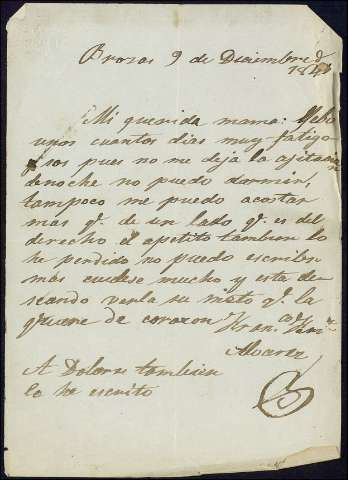 Brozas 9 de Diciembre d
Mi querida mama: llebo
unos cuantos dias muy fatigo-
sos pues no me deja la ajitacion
denoche no puedo dormir,
tampoco me puedo acostar
mas q. de un lado q. es del
derecho el apetito tambien lo
he perdido no puedo escribir
mas cuidese mucho y esta de-
seando verla su nieto q. la
quiere de corazon Fran.co
Alvarez
A Dolores tambien
la he escrito